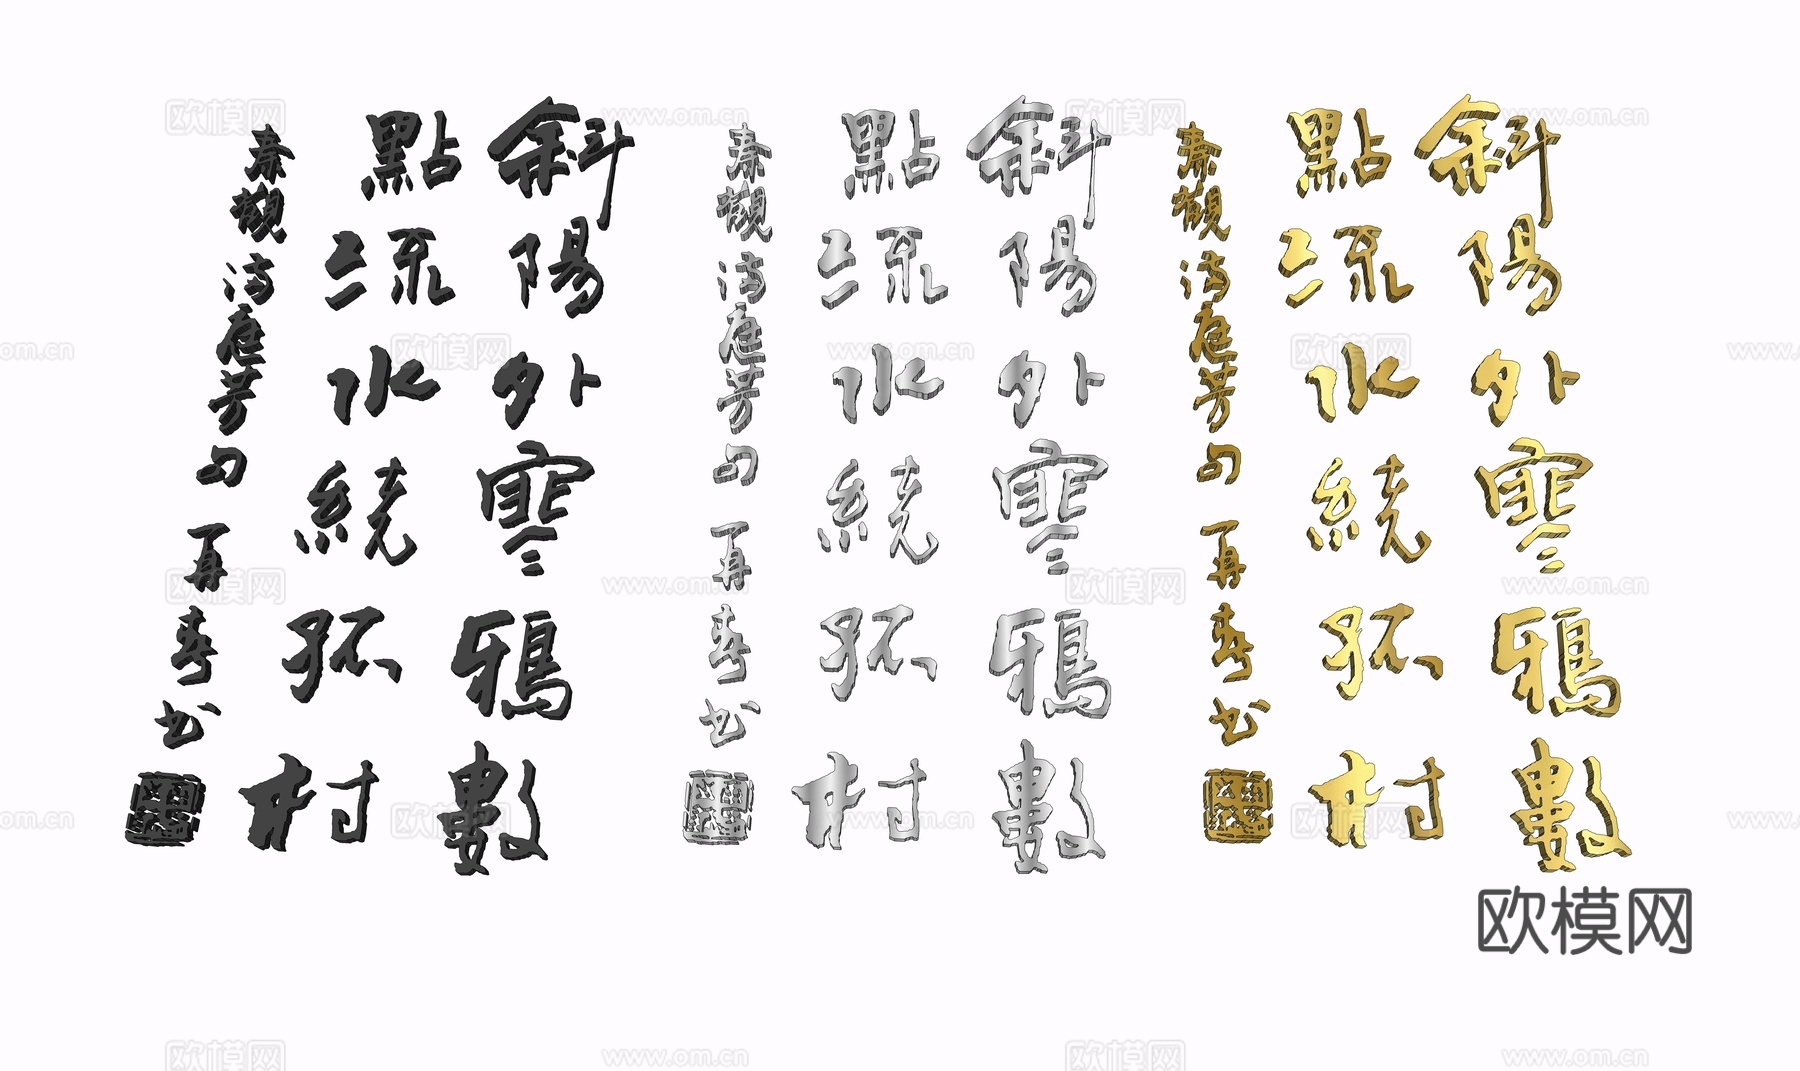 斜陽外寒鴉數
點流水繞孤村
秦觀滿庭芳句 再 书
斜陽外寒鴉數
點流水繞孤村
秦觀滿庭芳句 再 书
斜陽外寒鴉數
點流水繞孤村
秦觀滿庭芳句 再 书
欧模网
www.om.cn